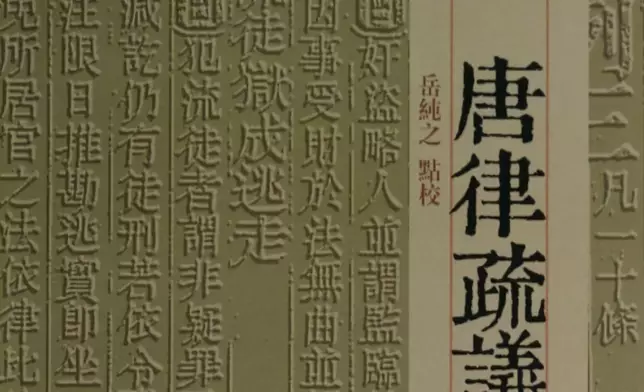 例三凡一十條
唐律疏議
岳純之 點校
姦盜略人並謂監臨
因事受財於法無曲並
徒獄成逃走
犯流徒者謂非疑罪
減訖仍有徒刑若依令
注限日推勘逃實即坐
免所居官之法依律此